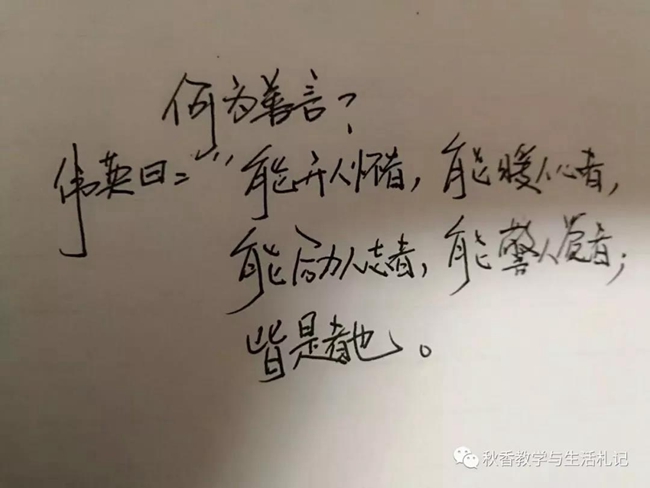 何为善言？
伟英曰：“能开人怀者，能暖人心者，
能励人志者，能警人觉者；
皆是者也。
秋香教学与生活札记